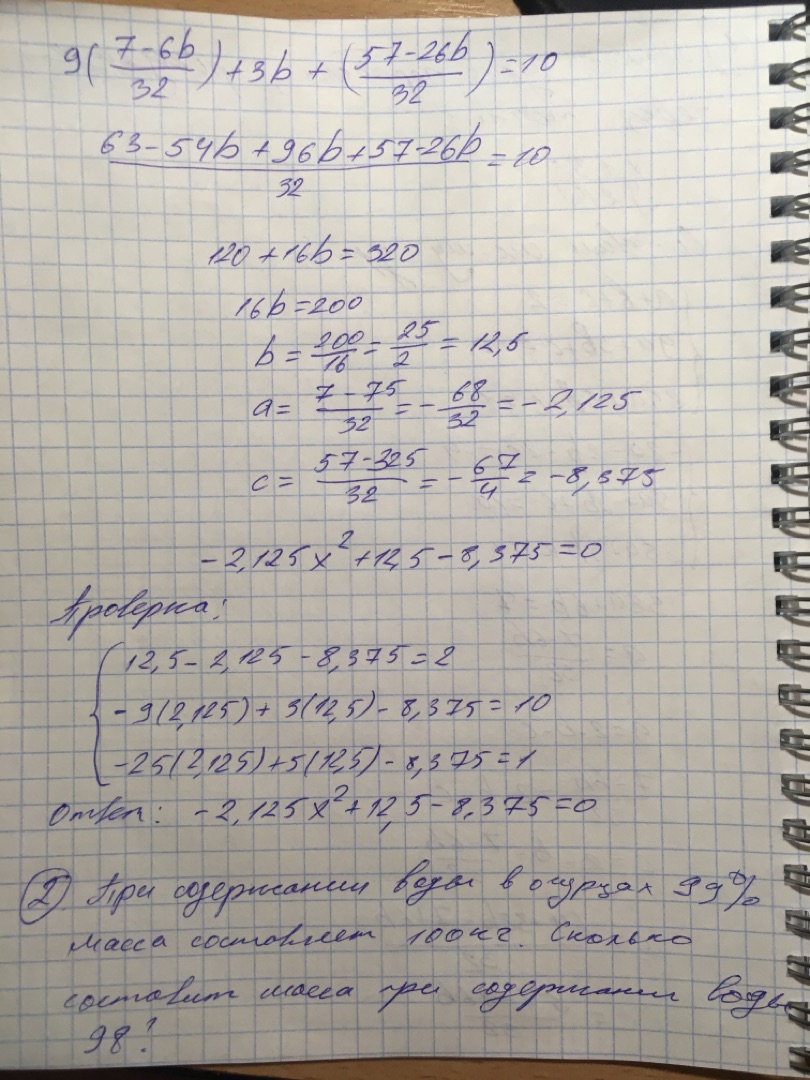 9(\frac{7-6b}{32})+3b+(\frac{57-26b}{32})=10
\frac{63-54b+96b+57-26b}{32}=10
120+16b=320
16b=200
b=\frac{200}{16}=\frac{25}{2}=12,5
a=\frac{7-75}{32}=-\frac{68}{32}=-2,125
c=\frac{57-325}{32}=-\frac{67}{4}=-8,375
-2,125x²+12,5-8,375=0
Проверка:
12,5-2,125-8,375=2
-9(2,125)+3(12,5)-8,375=10
-25(2,125)+5(12,5)-8,375=1
Ответ: -2,125x²+12,5-8,375=0
2) При содержании воды в огурцах 99%
масса составляет 100кг. Сколько
составит масса при содержании воды
98?